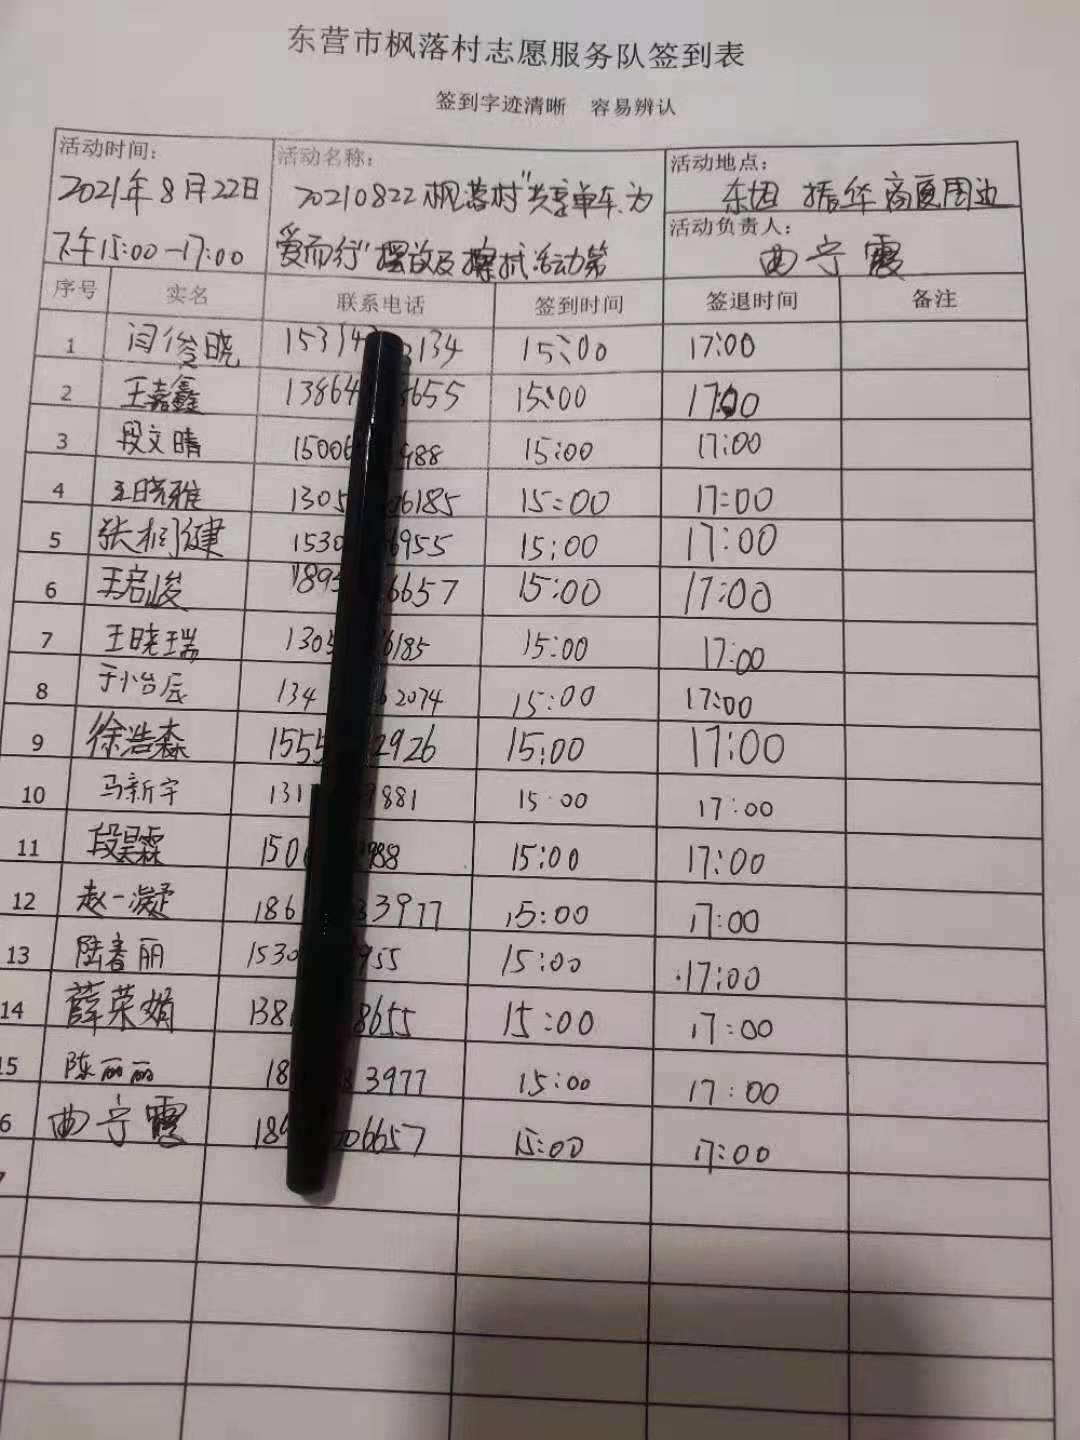 东营市枫落村志愿服务队签到表
签到字迹清晰 容易辨认
活动时间: 2021年8月22日 下午15:00-17:00
活动名称: 20210822枫落村"共享单车、为爱而行"摆放及擦拭活动第
活动地点: 东四 振华商厦周边
活动负责人: 曲宁霞
序号 实名 联系电话 签到时间 签退时间 备注
1 闫俊晓 15:00 17:00
2 王嘉鑫 13864 8655 15:00 17:00
3 段文晴 1500 988 15:00 17:00
4 王晓雅 1305 6185 15:00 17:00
5 张桐健 1530 6955 15:00 17:00
6 王启峻 1895 6657 15:00 17:00
7 王晓瑞 1305 6185 15:00 17:00
8 于怡辰 134 2074 15:00 17:00
9 徐浩森 1555 2926 15:00 17:00
10 马新宇 131 9881 15:00 17:00
11 段昊霖 150 988 15:00 17:00
12 赵一凝 186 3977 15:00 17:00
13 陆春丽 1530 955 15:00 17:00
14 薛荣娟 138 8655 15:00 17:00
15 陈丽丽 18 3977 15:00 17:00
6 曲宁霞 189 06657 15:00 17:00